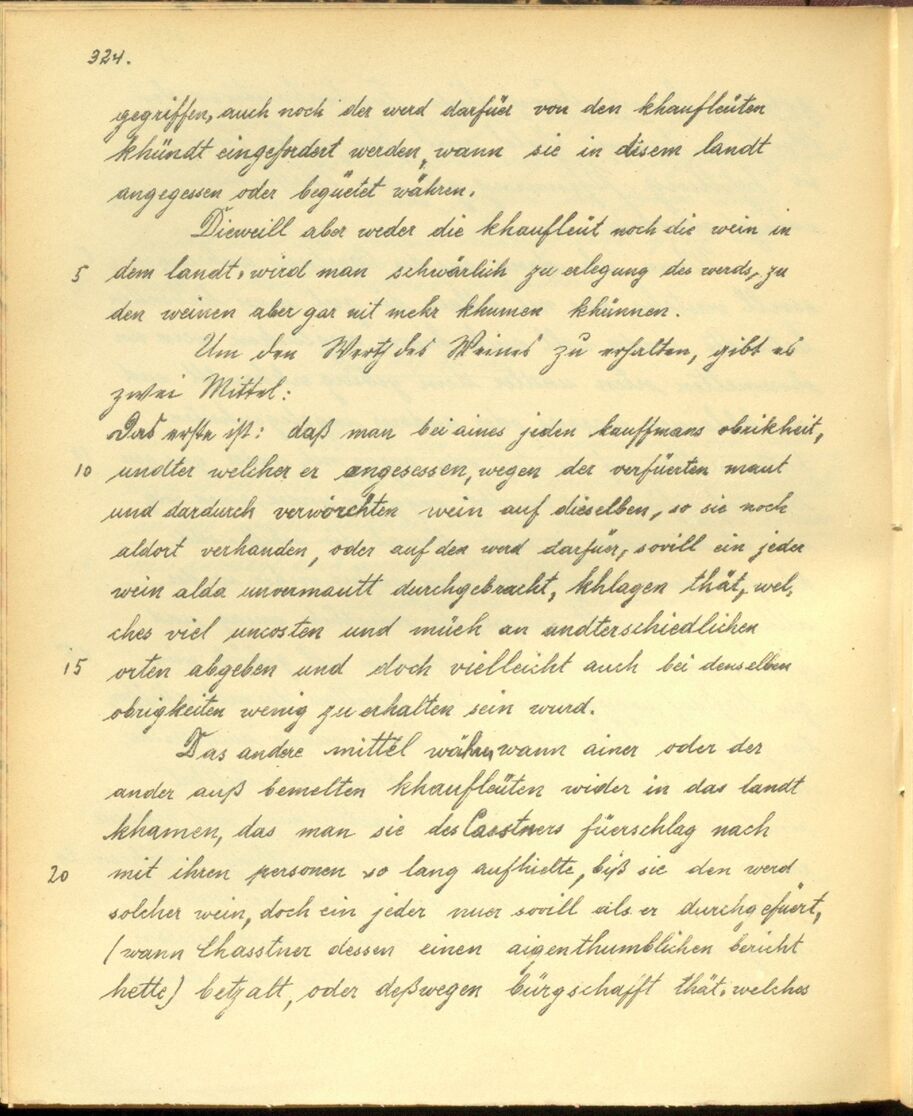 324.
gegriffen, auch noch der werd darfüer von den khaufleüten
khündt eingefordert werden, wann sie in disem landt
angegessen oder begüetet währen.
Dieweill aber weder die khaufleüt noch die wein in
5 dem landt, wird man schwärlich zu erlegung des werds, zu
den weinen aber gar nit mehr khumen khünnen.
Um den Wert des Weines zu erhalten, gibt es
zwei Mittel:
Das erste ist: daß man bei aines jeden kauffmans obrikheit,
10 undter welcher er angesessen, wegen der verfüerten maut
und dardurch verwörchten wein auf dieselben, so sie noch
aldort verhanden, oder auf den werd darfüer, sovill ein jeder
wein alda unvermautt durchgebracht, khlagen thät, wel,
ches viel uncosten und müeh an undterschiedlichen
15 orten abgeben und doch vielleicht auch bei denselben
obrigkeiten wenig zu erhalten sein wurd.
Das andere mittel währe, wann ainer oder der
ander auß bemelten khaufleüten wider in das landt
khamen, das man sie des Casstners füerschlag nach
20 mit ihren personen so lang aufhielte, biß sie den werd
solcher wein, doch ein jeder nuer sovill als er durchgefüert,
(wann Chasstner dessen einen aigenthumblichen bericht
hette) betzalt, oder deßwegen bürgschafft thät, welches